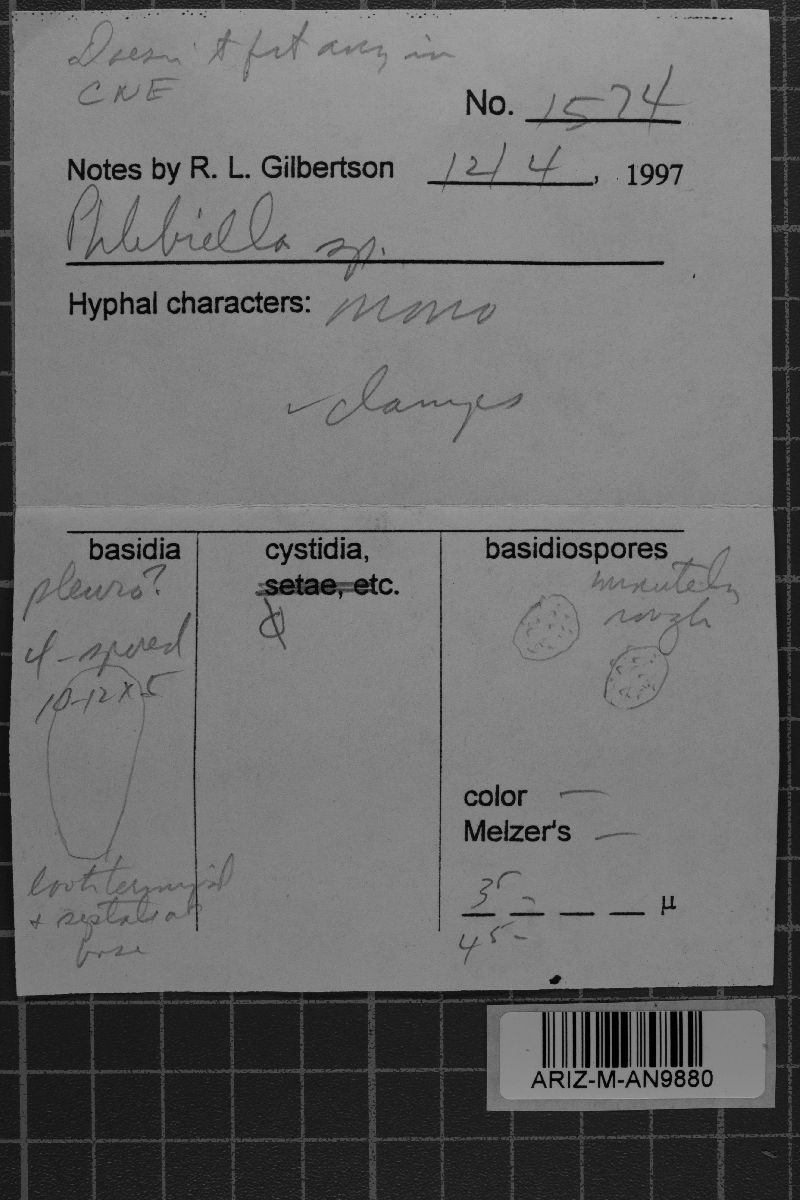 Doesn't fit any in
CNE
No. 1574
Notes by R. L. Gilbertson 12/4, 1997
Phlebiella sp.
Hyphal characters: mono
✓ clamps
basidia
cystidia,
setae, etc.
basidiospores
pleuro?
4-spored
10-12 x 5
minutely
rough
color —
Melzer's —
35 -
µ
45 -
look terminal
+ septate at
base
ARIZ-M-AN9880